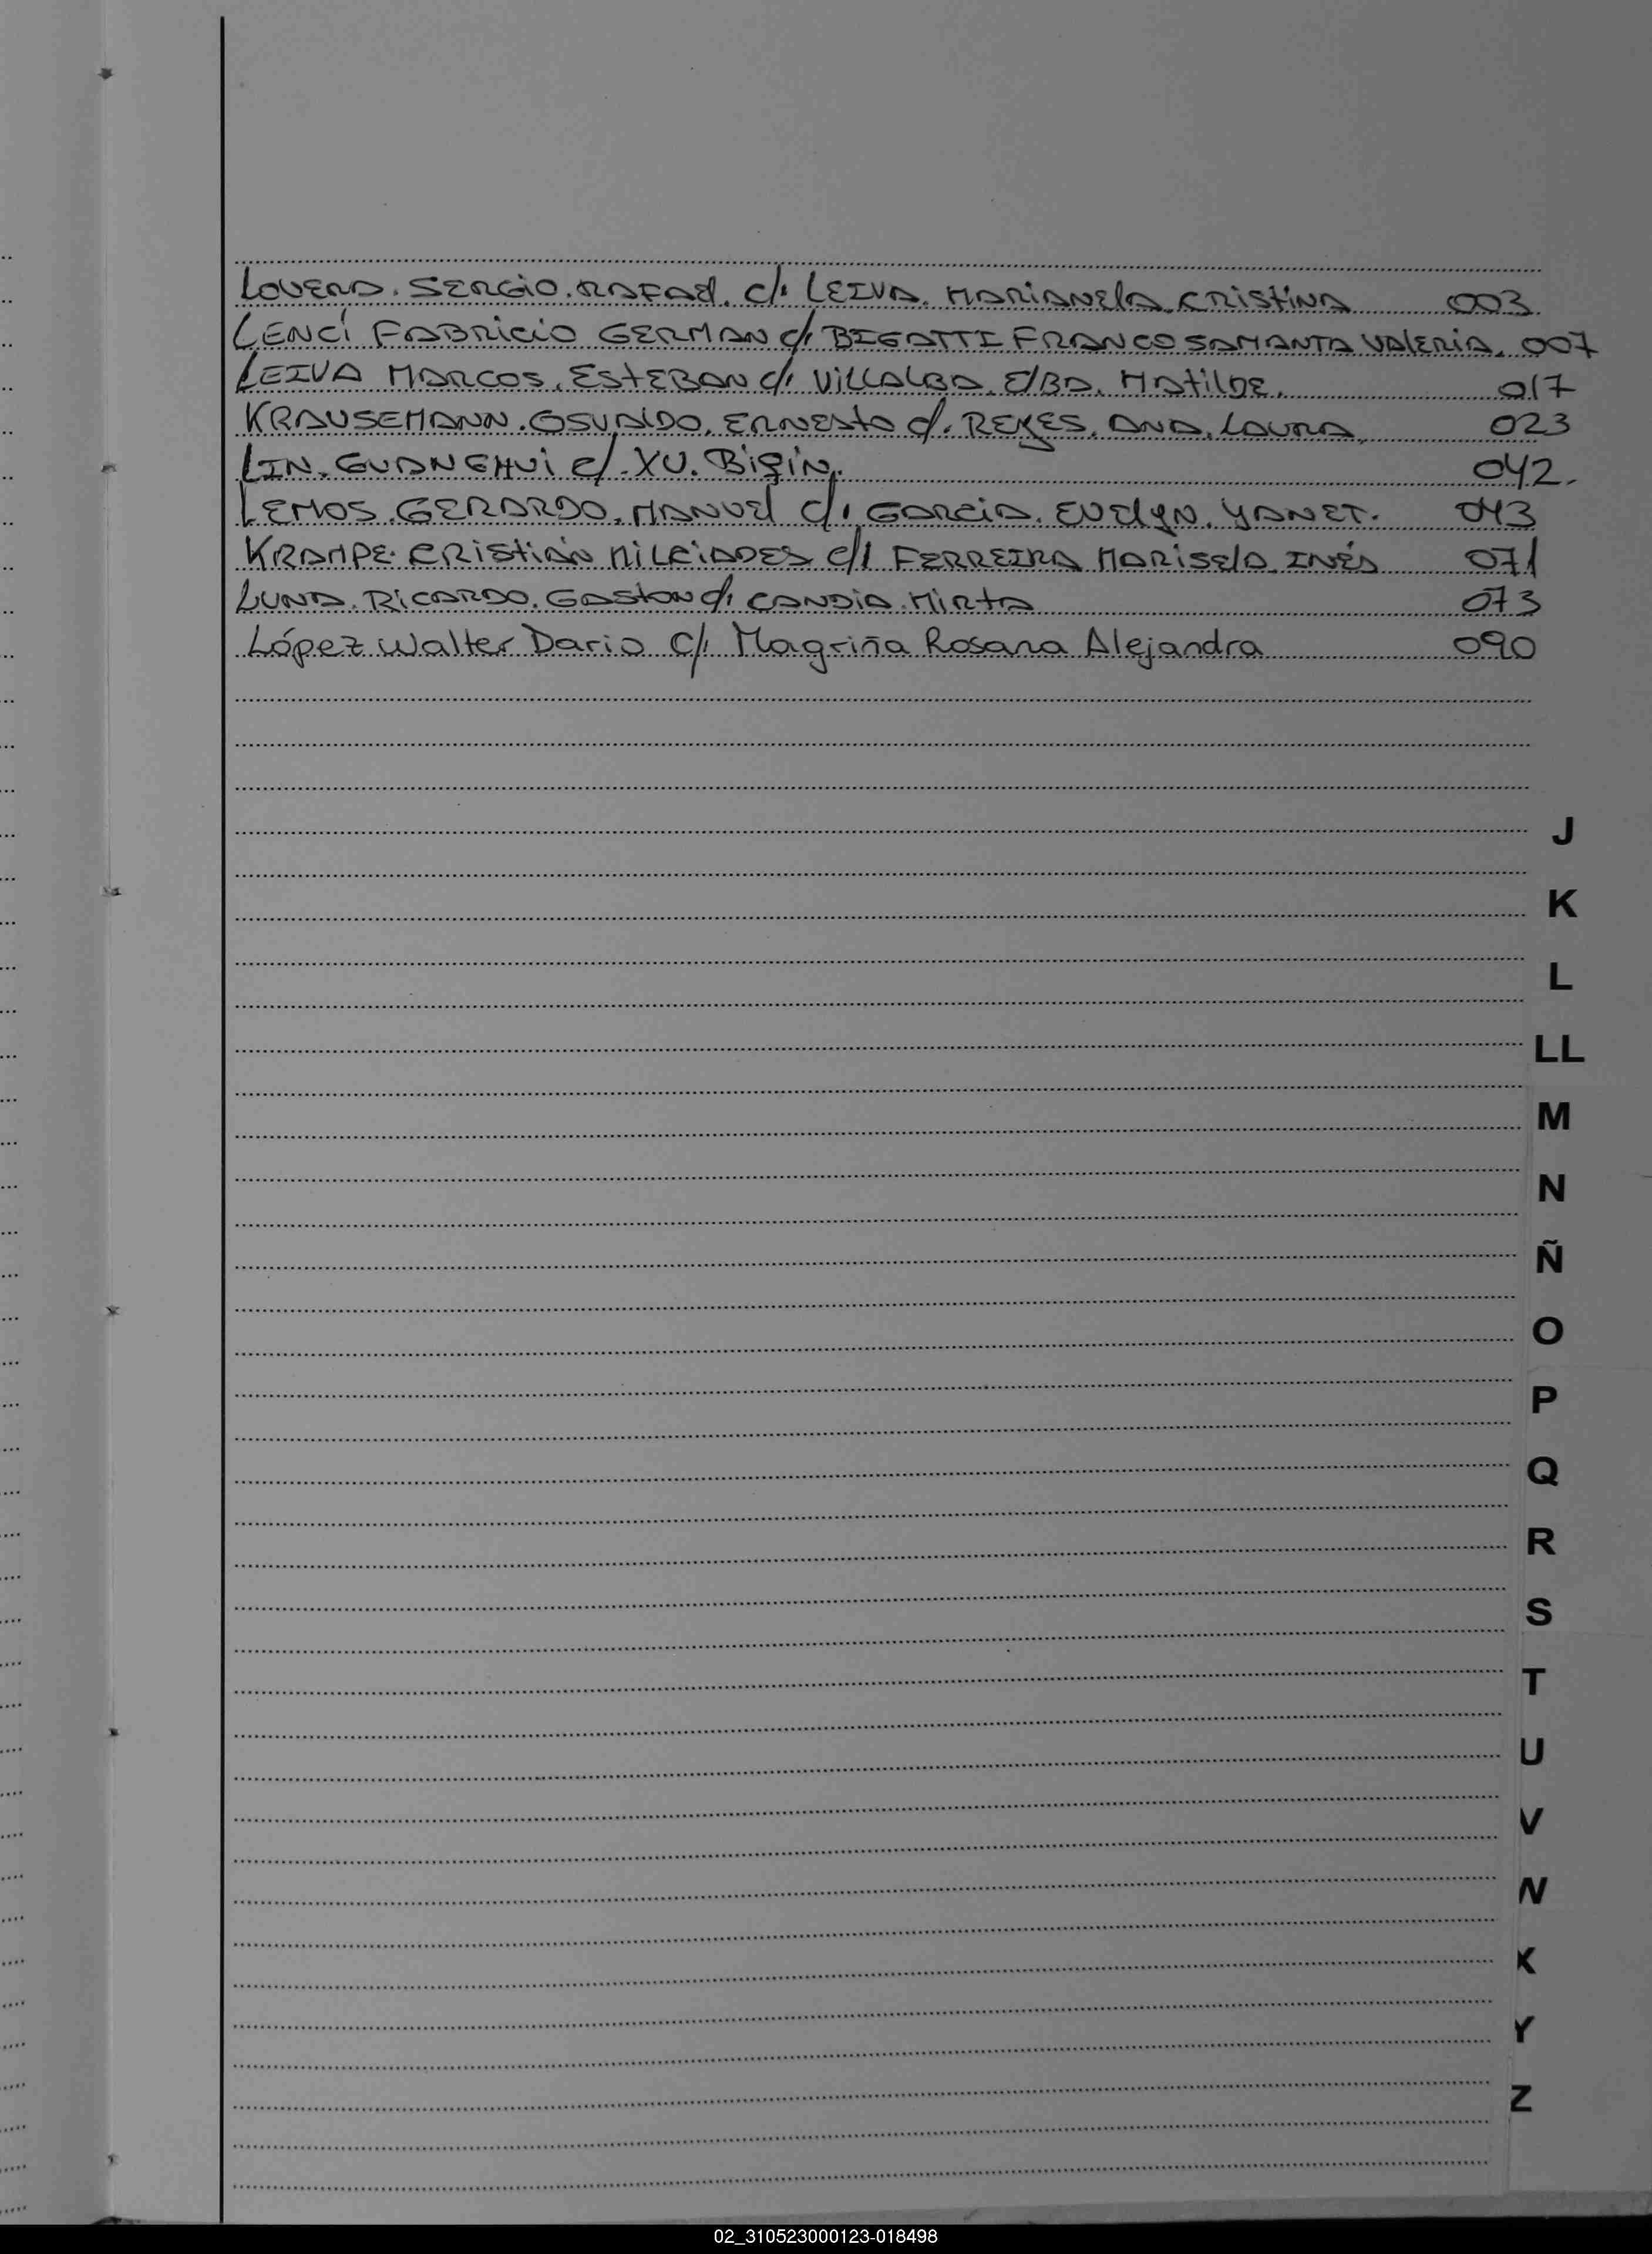 Lovera Sergio Rafael c/. Leiva Marianela Cristina 003
Lenci Fabricio German c/. Bigatti Franco Samanta Valeria. 007
Leiva Marcos Esteban c/. Villalba Elba Matilde. 017
Krausemann Osvaldo Ernesto c/. Reyes Ana Laura 023
Lin Guanghui c/. Xu Biqin. 042.
Lemos Gerardo Manuel c/. Garcia Evelyn Yanet. 043
Krampe Cristián Milciades c/. Ferreira Marisela Inés 071
Luna Ricardo Gaston c/. Candia Mirta 073
López Walter Dario c/. Magriña Rosana Alejandra 090
J
K
L
LL
M
N
Ñ
O
P
Q
R
S
T
U
V
W
X
Y
Z
02_310523000123-018498